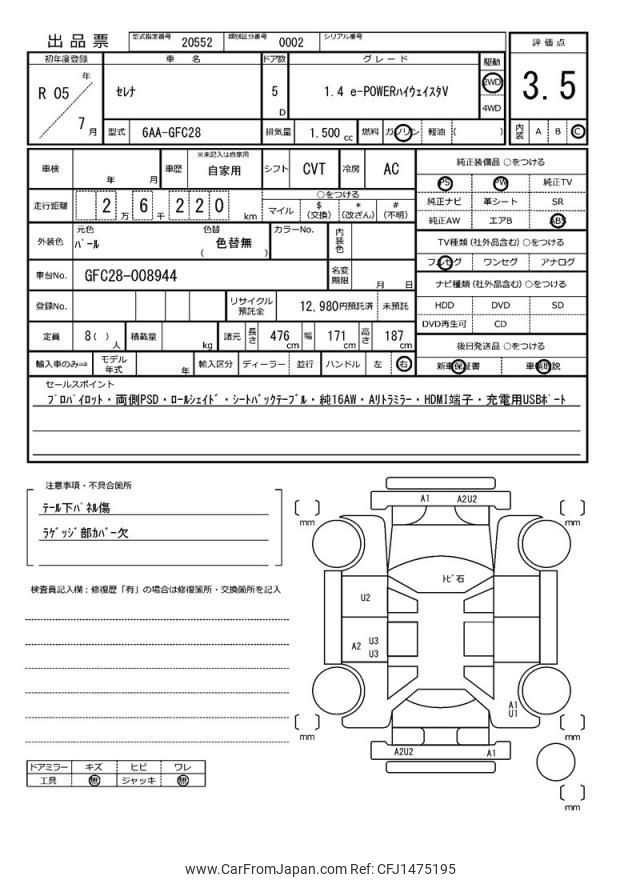 出品票
型式指定番号 20552 類別区分番号 0002 シリアル番号
評価点
3.5
内装 A B C
初年度登録 車名 ドア数 グレード 駆動
R 05 年 7 月
ｾﾚﾅ 5 D 1.4 e-POWERﾊｲｳｪｲｽﾀV 2WD
4WD
型式 6AA-GFC28 排気量 1.500 cc 燃料 ガソリン 軽油 ( )
車検 年 月 車歴 ※未記入は自家用 自家用 シフト CVT 冷房 AC
走行距離 2 万 6 千 2 2 0 km
○をつける
マイル $(交換) *(改ざん) #(不明)
外装色 元色 ﾊﾟｰﾙ 色替 色替無 ( ) カラーNo. 内装色
車台No. GFC28-008944 名変期限 月 日
登録No. リサイクル預託金 12,980円預託済 未預託
定員 8( )人 積載量 kg 諸元 長さ 476 cm 幅 171 cm 高さ 187 cm
輸入車のみ⇒ モデル年式 年 輸入区分 ディーラー 並行 ハンドル 左 右
純正装備品 ○をつける
PS PW 純正TV
純正ナビ 革シート SR
純正AW エアB ABS
TV種類(社外品含む)○をつける
フルセグ ワンセグ アナログ
ナビ種類(社外品含む)○をつける
HDD DVD SD
DVD再生可 CD
後日発送品 ○をつける
新車保証書 車輌取説
セールスポイント
ﾌﾟﾛﾊﾟｲﾛｯﾄ・両側PSD・ﾛｰﾙｼｪｲﾄﾞ・ｼｰﾄﾊﾞｯｸﾃｰﾌﾞﾙ・純16AW・Aﾘﾄﾗﾐﾗｰ・HDMI端子・充電用USBﾎﾟｰﾄ
注意事項・不具合箇所
ﾃｰﾙ下ﾊﾟﾈﾙ傷
ﾗｹﾞｯｼﾞ部ｶﾊﾞｰ欠
検査員記入欄：修復歴「有」の場合は修復箇所・交換箇所を記入
ドアミラー キズ ヒビ ワレ
工具 無 ジャッキ 無
A1 A2U2
mm
mm
ﾄﾋﾞ石
U2
A2 U3
U3
A1
U1
mm
mm
A2U2 A1
mm
www.CarFromJapan.com Ref: CFJ1475195